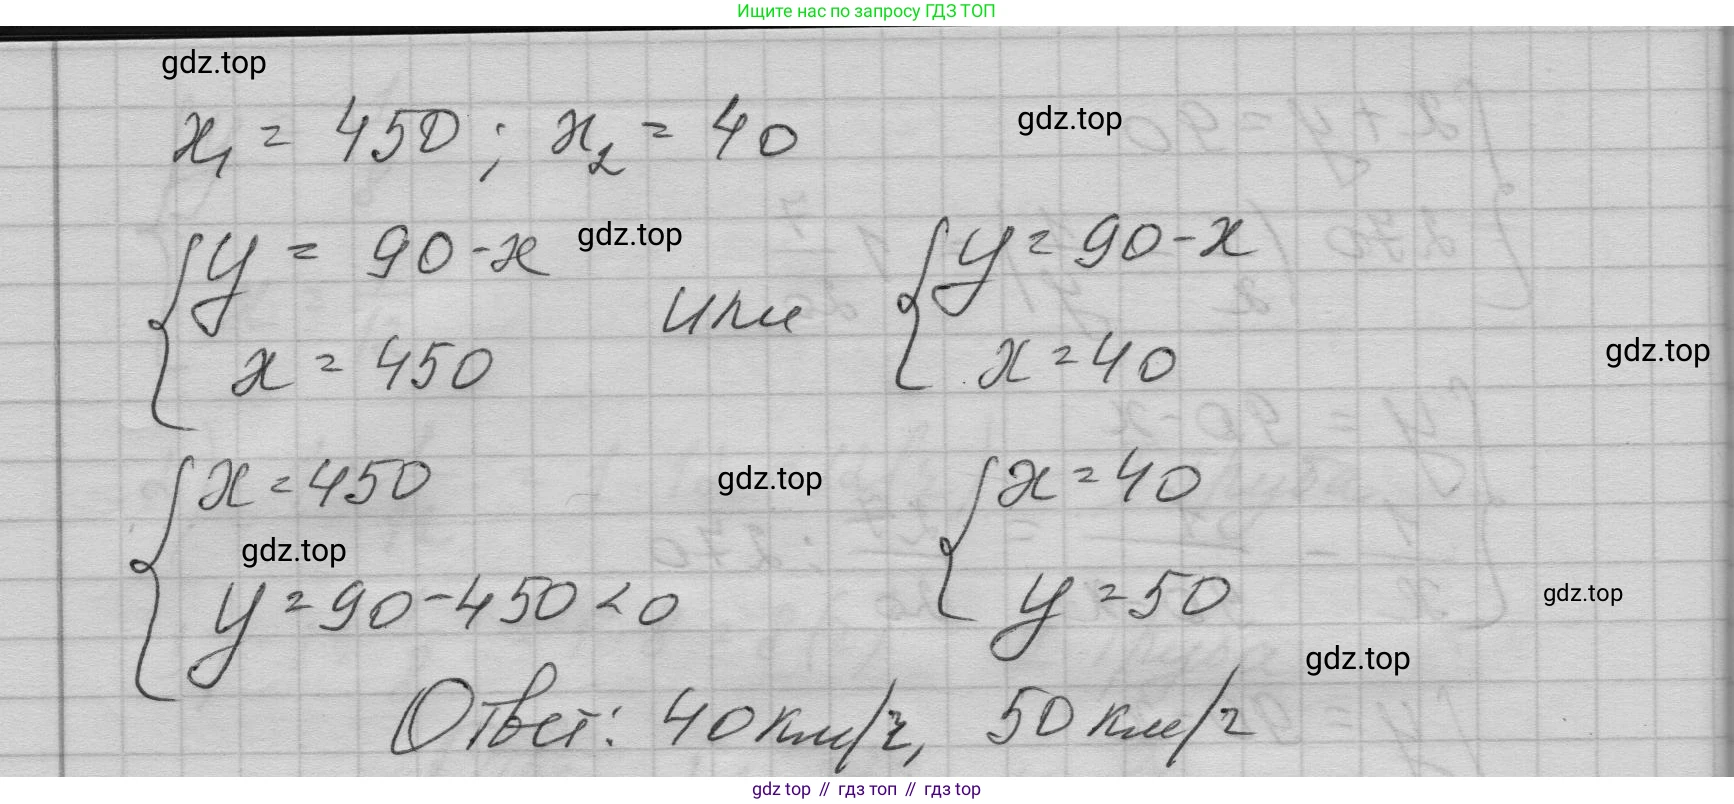 Ищите нас по запросу ГДЗ ТОП
gdz.top
x₁ = 450 ; x₂ = 40
gdz.top
{ y = 90 - x
gdz.top
или
{ y = 90 - x
x = 450
x = 40
gdz.top
{ x = 450
gdz.top
{ x = 40
gdz.top
y = 90 - 450 < 0
y = 50
gdz.top
gdz.top
Ответ: 40 км/ч, 50 км/ч
gdz top // гдз топ // gdz top